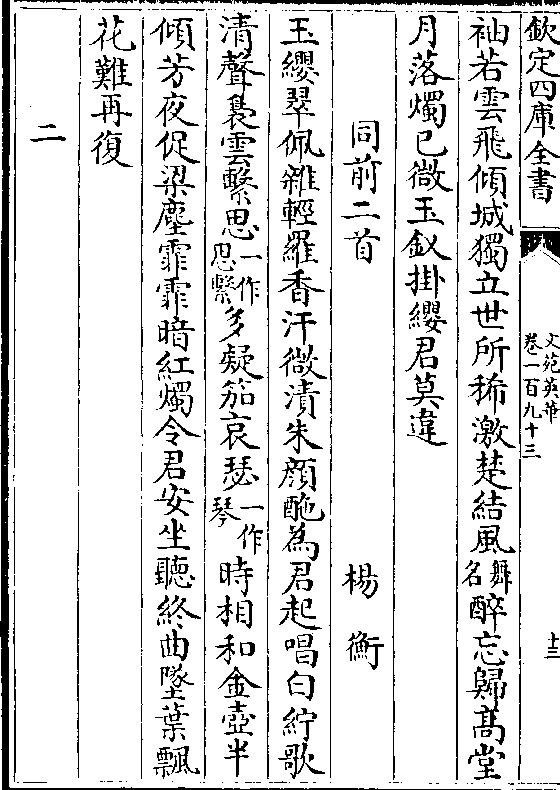 欽定四庫全書
文苑英華
卷一百九十三
十三
袖若雲飛傾城獨立世所稀激楚結風舞名醉忘歸髙堂
月落燭已微玉釵掛纓君莫違
同前二首 楊衡
玉纓翠佩雜輕羅香汗微漬朱顔酡為君起唱白紵歌
清聲裊雲繫思一作思繫多凝笳哀瑟一作琴時相和金壺半
傾芳夜促梁塵霏霏暗紅燭令君安坐聽終曲墜葉飄
花難再復
二